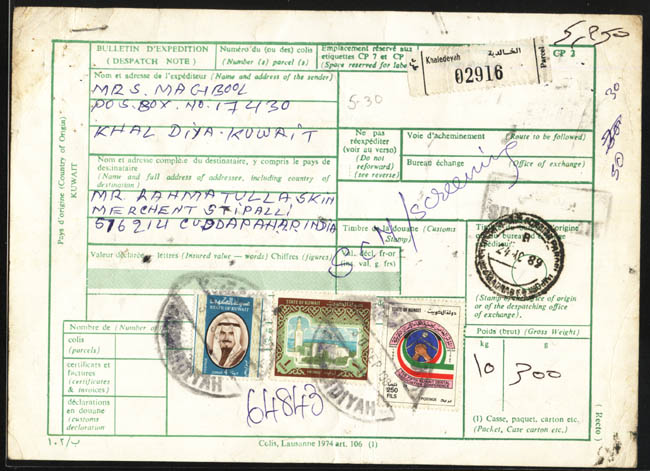 5,850
BULLETIN D'EXPÉDITION
(DESPATCH NOTE)
Numéro du (ou des) colis
(Number (s) parcel (s)
Emplacement réservé aux
étiquettes CP 7 et CP
(Space reserved for labe
CP 2
الخالدية
Khaledeyah
Parcel
02916
Nom et adresse de l'expéditeur (Name and address of the sender)
MRS. MAGBOOL
POS. BOX. NO. 17430
KHAL DIYA-KUWAIT
5-30
30
30
Pays d'origine (Country of Origin)
KUWAIT
Ne pas
réexpéditer
(voir au verso)
(Do not
reforward)
(see reverse)
Voie d'acheminement (Route to be followed)
Bureau échange (Office of exchange)
Nom et adresse complète du destinataire, y compris le pays de
destinataire
(Name and full address of addresser, including country of
destination)
MR. RAHMATULLA SKIN
MERCHENT STIPALLI
516214 CUDDAPAHAR INDIA
SCN/screening
Timbre de la douane (Customs
Stamp)
Valeur déclarée lettres (Insured value — words) Chiffres (figures)
Val. décl. fr-or
(ins. val. g. frs)
(Stamp of office of origin
or of the despatching office
of exchange)
STATE OF KUWAIT
STATE OF KUWAIT
STATE OF KUWAIT
دولة الكويت
250
FILS
POSTAGE
Numéro de (Number o
colis
(parcels)
certificats et
factures
(certificates
& invoices)
déclarations
en douane
(customs
declaration
Poids (brut) (Gross Weight)
kg
10 300
64843
(1) Casse, paquet, carton etc.
(Packet, Case carton etc.)
(Recto)
Colis, Lausanne 1974 art. 106 (1)